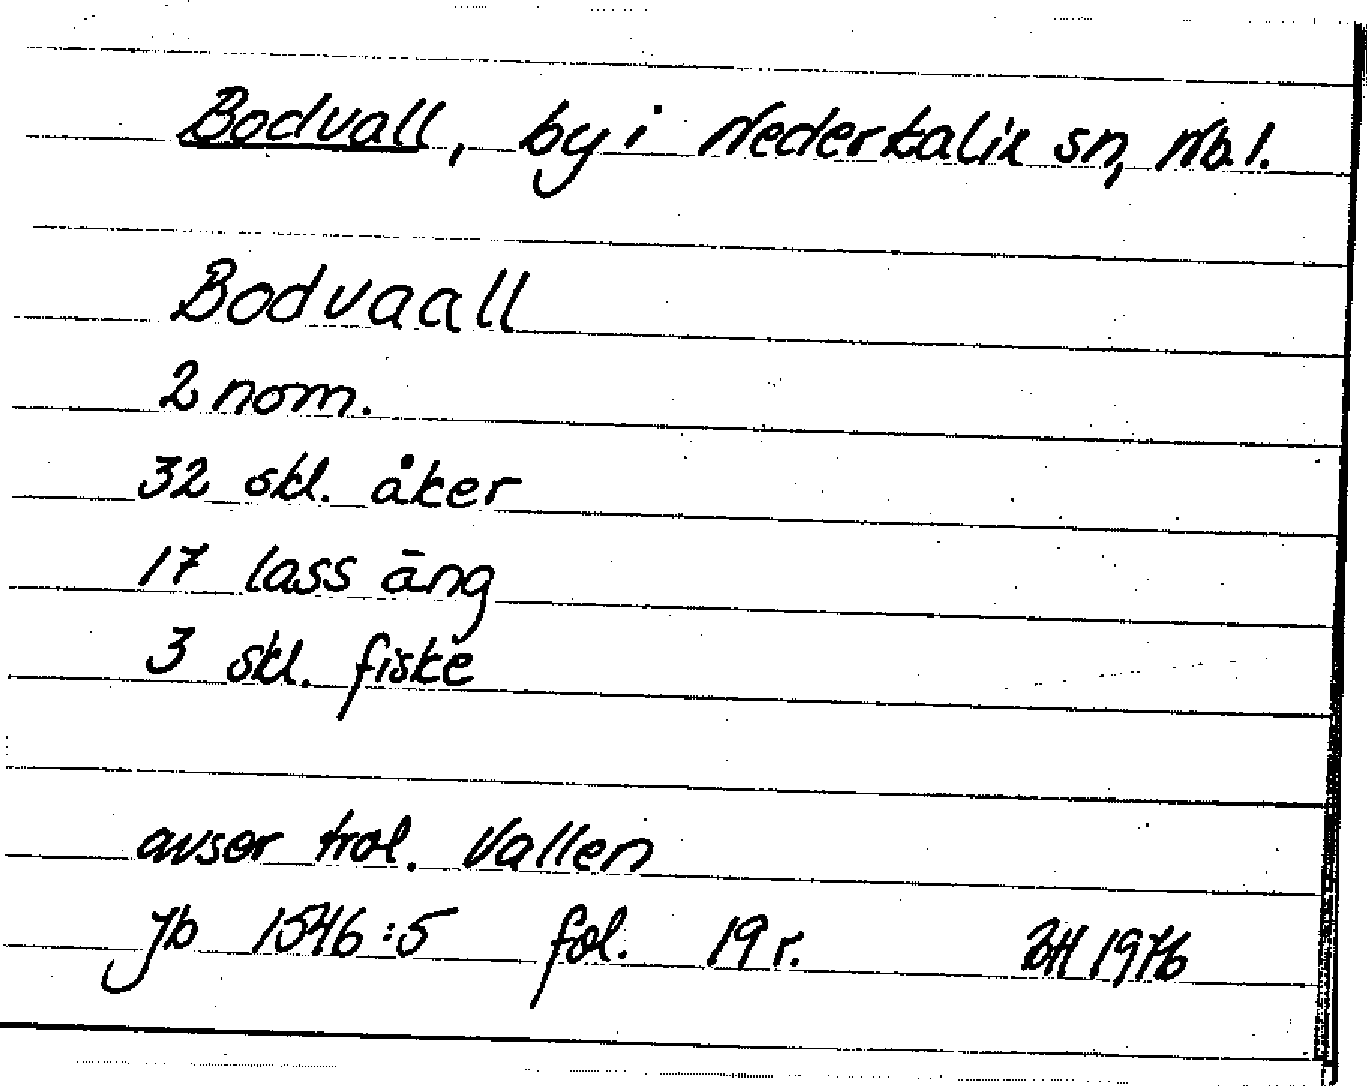 Bodvall, by i Nederkalix sn, Nb. l.
Bodvaall
2 nom.
32 skl. åker
17 lass äng
3 skl. fiske
avser trol. Vallen
Jb 1546:5 fol. 19 r. 1976